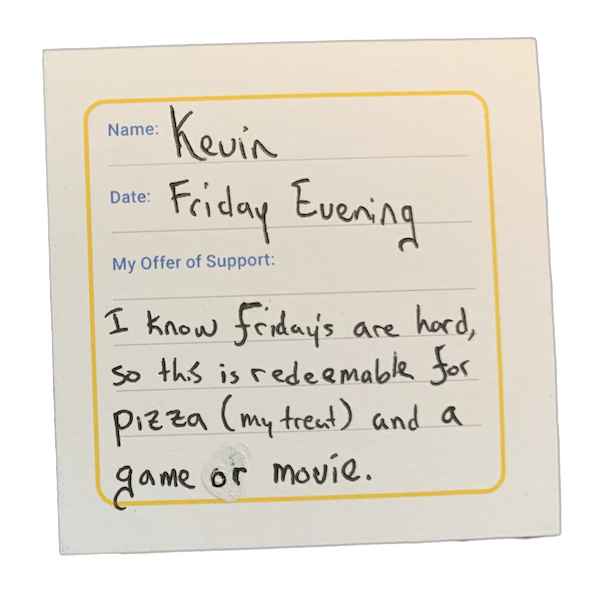 Name: Kevin
Date: Friday Evening
My Offer of Support:
I know friday's are hard,
so this is redeemable for
pizza (my treat) and a
game or movie.